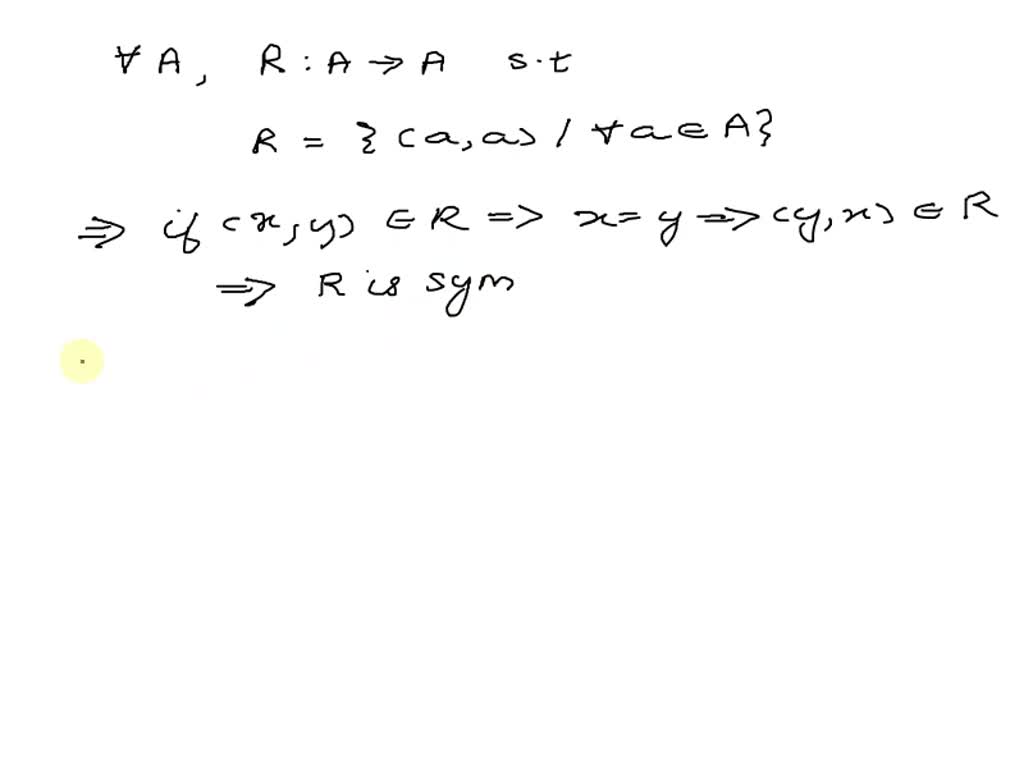 ∀ A, R : A → A s.t
R = {(a, a) / ∀ a ∈ A}
⇒ if (x, y) ∈ R ⇒ x = y ⇒ (y, x) ∈ R
⇒ R is sym